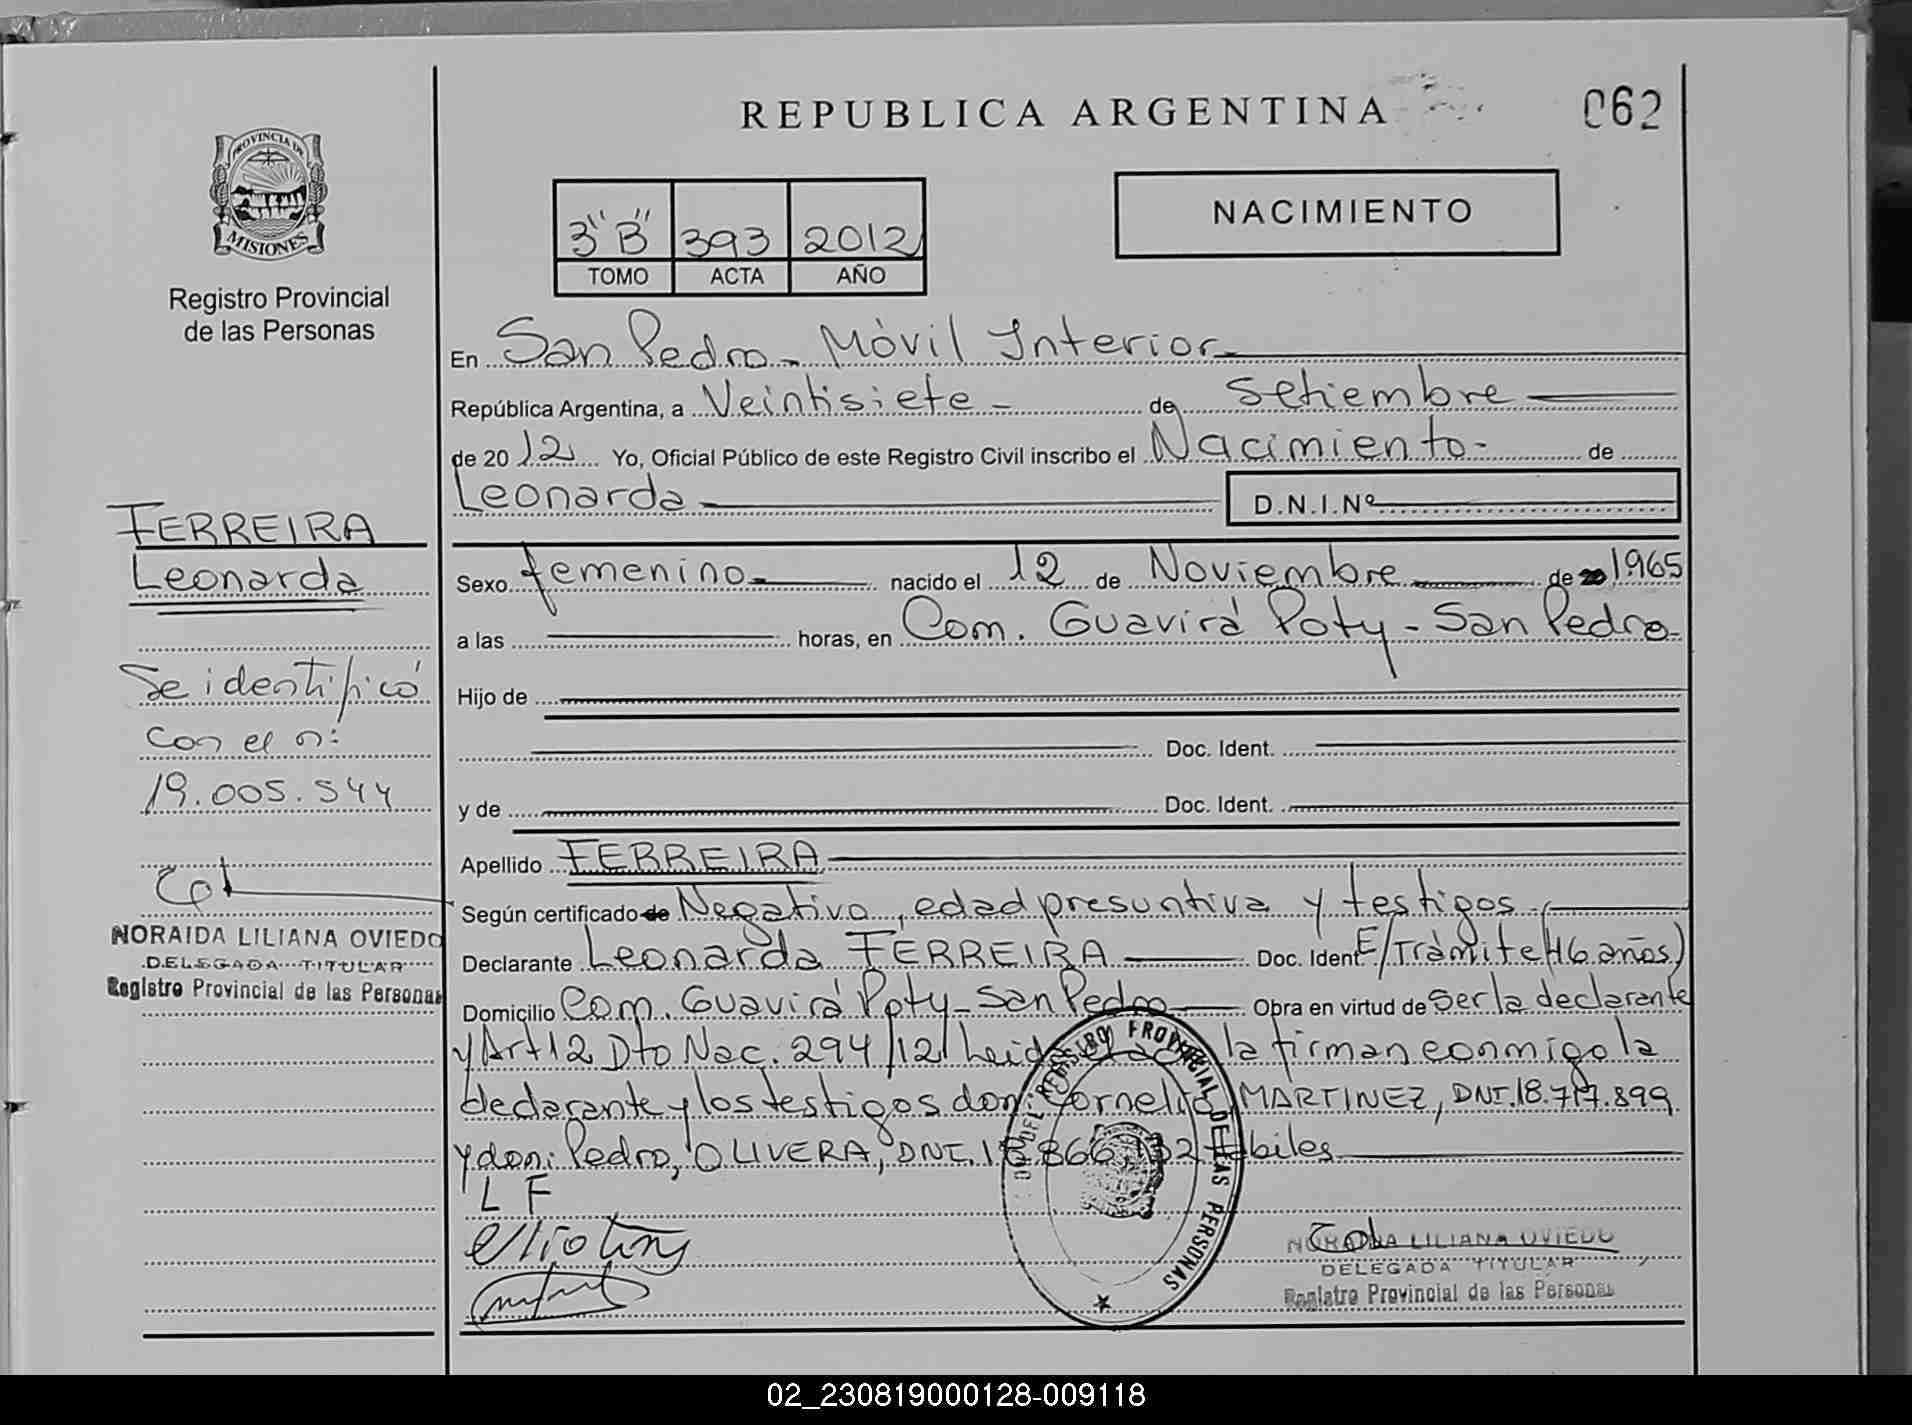 REPUBLICA ARGENTINA
062
PROVINCIA DE
MISIONES
Registro Provincial
de las Personas
3 "B" 393 2012
TOMO ACTA AÑO
NACIMIENTO
En San Pedro - Móvil Interior
República Argentina, a Veintisiete - de Setiembre
de 20 12 Yo, Oficial Público de este Registro Civil inscribo el Nacimiento - de
Leonarda D.N.I.Nº
Sexo femenino nacido el 12 de Noviembre de 1965
a las horas, en Com. Guavirá Poty - San Pedro
Hijo de
Doc. Ident.
y de Doc. Ident.
Apellido FERREIRA
Según certificado de Negativo, edad presuntiva y testigos
Declarante Leonarda FERREIRA Doc. Ident E/Trámite (46 años)
Domicilio Com. Guavirá Poty - San Pedro Obra en virtud de ser la declarante
y Art 12 Dto Nac. 294/12 Leida el la firman conmigo la
declarante y los testigos don: Cornelio MARTINEZ, DNI. 18.717.899
y don: Pedro, OLIVERA, DNI. 18 866 Hábiles
L F
DEL REGISTRO PROVINCIAL DE LAS PERSONAS
NORAIDA LILIANA OVIEDO
DELEGADA TITULAR
Registro Provincial de las Personas
FERREIRA
Leonarda
Se identificó
con el n:
19.005.544
NORAIDA LILIANA OVIEDO
DELEGADA TITULAR
Registro Provincial de las Personas
02_230819000128-009118